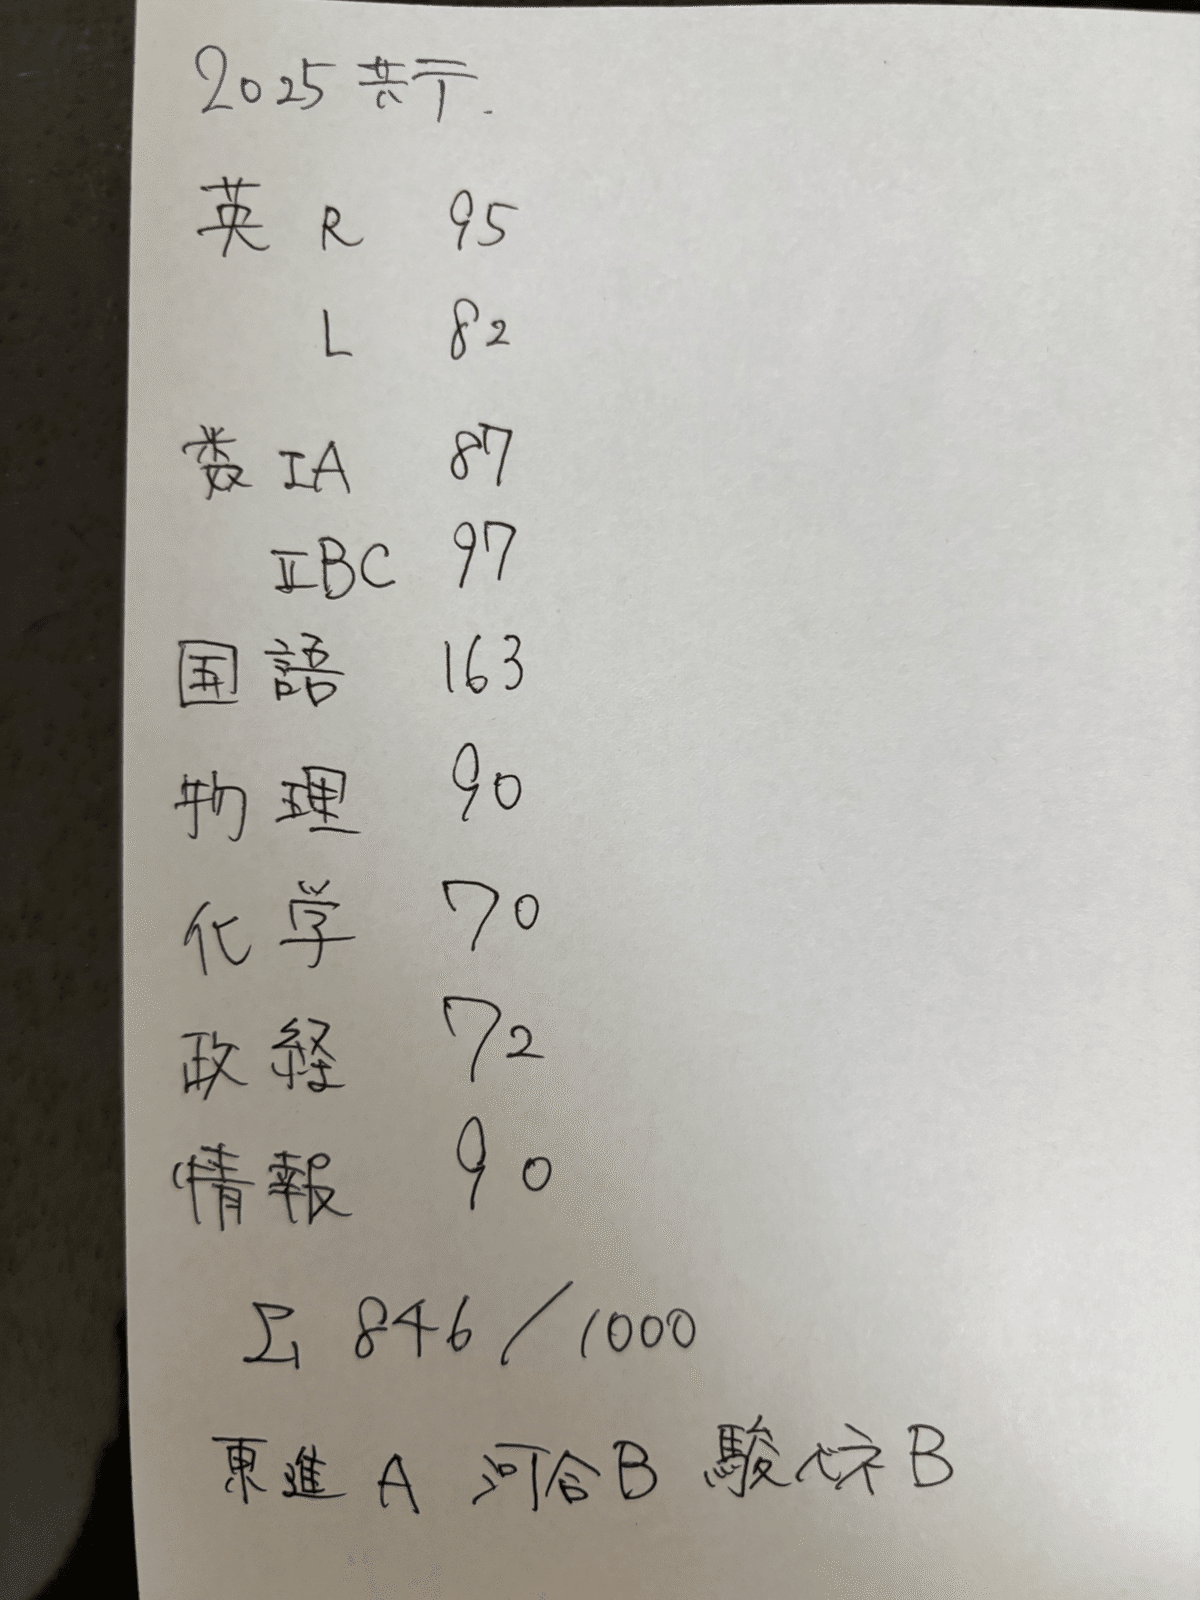 2025 共テ.
英 R 95
L 82
数 IA 87
ⅡBC 97
国語 163
物理 90
化学 70
政経 72
情報 90
Σ 846/1000
東進 A 河合 B 駿ベネ B